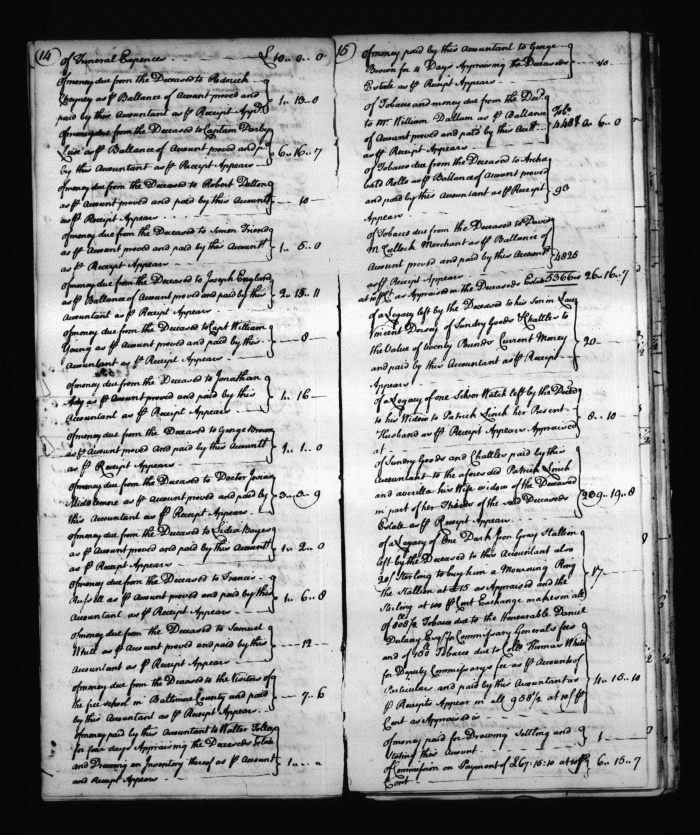 14
of Funeral Expences £ 10.. 0.. 0
of money due from the Deceased to Rodrick
Cheyney as ⅌ Ballance of Account proved and
paid by this Accountant as ⅌ Receipt Appr. 1.. 13.. 0
of money due from the Deceased to Captain Darby
Lux as ⅌ Ballance of Account proved and p
by this Accountant as ⅌ Receipt Appears 6.. 16.. 7
of money due from the Deceased to Robert Dutton
as ⅌ Account proved and paid by this Accountt
as ⅌ Receipt Appears 10
of money due from the Deceased to Simon Friend
as ⅌ Account proved and paid by this Accountt
as ⅌ Receipt Appears 1.. 5.. 0
of money due from the Deceased to Joseph England
as ⅌ Ballance of Account proved and paid by this
Accountant as ⅌ Receipt Appears 2.. 15.. 11
of money due from the Deceased to Capt William
Young as ⅌ Account proved and paid by this
Accountant as ⅌ Receipt Appears 8
of money due from the Deceased to Jonathan
as ⅌ Account proved and paid by this
Accountant as ⅌ Receipt Appears 1.. 16
of money due from the Deceased to George Brown
as ⅌ Account proved and paid by this Accountt
as ⅌ Receipt Appears 1.. 1.. 0
of money due from the Deceased to Doctor Josias
Middlemore as ⅌ Account proved and paid by
this Accountant as ⅌ Receipt Appears 3.. 3.. 9
of money due from the Deceased to Lidia Boyer
as ⅌ Account proved and paid by this Accountt
as ⅌ Receipt Appears 1.. 2.. 0
of money due from the Deceased to Francis
Russell as ⅌ Account proved and paid by this
Accountant as ⅌ Receipt Appears 1.. 6.. 8
of money due from the Deceased to Samuel
as ⅌ Account proved and paid by this
Accountant as ⅌ Receipt Appears 12
of money due from the Deceased to the Visitors of
the free school in Baltimore County and paid
by this Accountant as ⅌ Receipt Appears 7.. 6
of money paid by this Accountant to Walter Tolley
for four days Appraising the Deceaseds Estate
and Drawing an Inventory thereof as ⅌ Account
and Receipt Appears 1
15
of money paid by this Accountant to George
Brown for 4 Days Appraising the Deceaseds
Estate as ⅌ Receipt Appears 10
of Tobacco and money due from the Decd.
to Mr. William Dallam as ⅌ Ballance
of Account proved and paid by this Acctt
as ⅌ Receipt Appears Tobo. 448 6.. 0
of Tobacco due from the Deceased to Archa
bald Rollo as ⅌ Ballance of Account proved
and paid by this Accountant as ⅌ Receipt
Appears 93
of Tobacco due from the Deceased to David
McCulloch Merchant as ⅌ Ballance of
Account proved and paid by this Accountt
as ⅌ Receipt Appears 4825
at 10 ⅌ Ct. as Appraised in the Deceaseds Estate 5366 is 26.. 16.. 7
of a Legacy left by the Deceased to his Son in Law
Vincent Dorsey of Sundry Goods & Chattles to
the Value of twenty Pounds Current Money
and paid by this Accountant as ⅌ Receipt
Appears 20
of a Legacy of one Silver Watch left by the Deced
to his Widow to Patrick Linch her Present
Husband as ⅌ Receipt Appears Appraised
at 8.. 10
of Sundry Goods and Chattles paid by this
Accountant to the aforesaid Patrick Linch
and his Wife widow of the Deceased
in part of her Thirds of the said Deceaseds
Estate as ⅌ Receipt Appears 209.. 19.. 8
of a Legacy of One Dark Iron Gray Stallion
left by the Deceased to this Accountant also
20/ Sterling to buy him a Mourning Ring
the Stallion at £15 as Appraised and the
Sterling at 100 ⅌ Cent Exchange makes in all 17
of 808½ Tobacco due to the Honourable Daniel
Dulany Esqr. Commissary Generals fees
and of 150 Tobacco due to Collo Thomas White
for Deputy Commissarys fee as ⅌ Accounts of
Particulars and paid by this Accountant as
⅌ Receipts Appear in all 958½ at 10/ ⅌
Cent as Appraised is 4.. 15.. 10
of money paid for Drawing Settling and
Stating this Account 1
of Commission on Payment of £67:15:10 at 10 ⅌
Cent 6.. 15.. 7